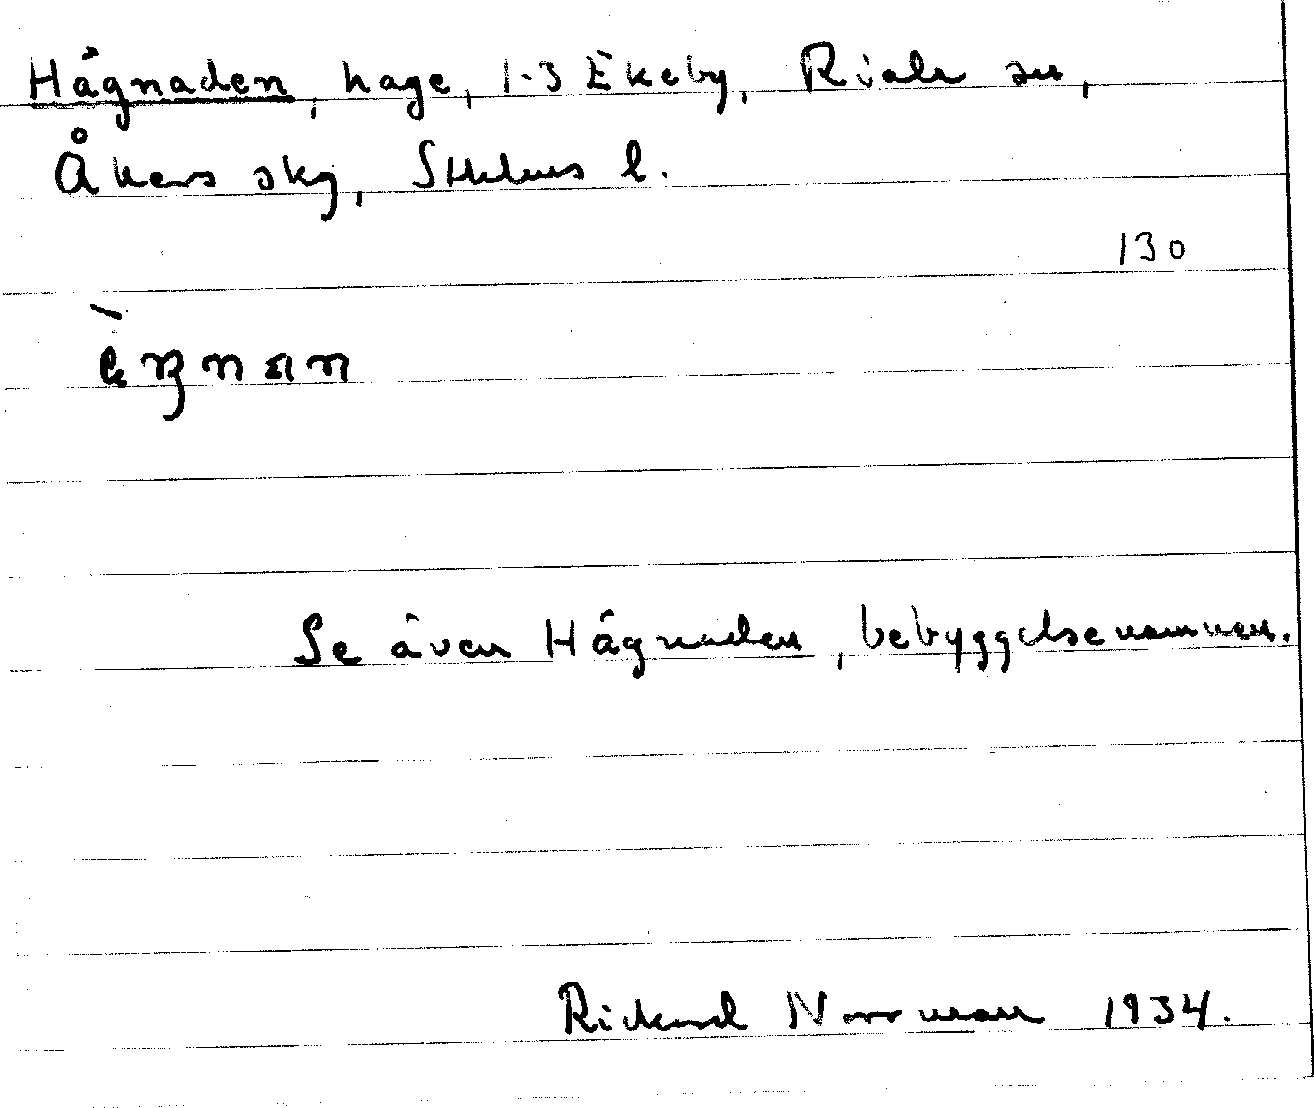 Hägnaden, hage, 1-3 Ekeby, Riala sn,
Åkers skg, Sthlms l.
130
Se även Hägnaden, bebyggelsenamnen.
Rickard Norrman 1934.